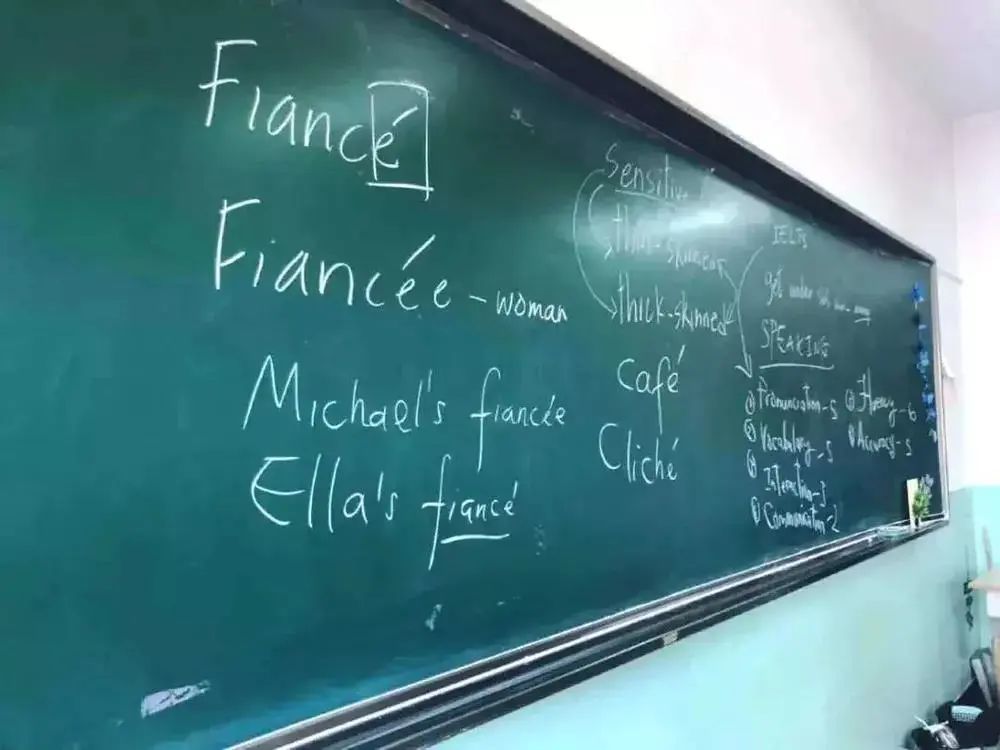 Fiancé
Fiancée - woman
Michael's fiancée
Ella's fiancé
Sensitive
thin-skinned
thick-skinned
Café
Cliché
IELTS
get under
SPEAKING
① Pronunciation - 5
② Vocabulary - 5
Interaction - 3
Communication - 2
Fluency - 6
Accuracy - 5